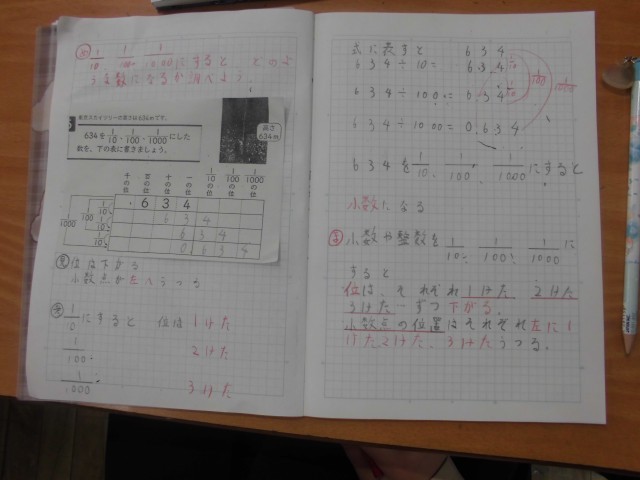 め 1/10 1/100 1/1000にすると どのよ
うな数になるか調べよう。
東京スカイツリーの高さは634mです。
634を1/10、1/100、1/1000にした
数を、下の表に書きましょう。
高さ
634m
千の位 百の位 十の位 一の位 1/10の位 1/100の位 1/1000の位
6 3 4
6 3 4
6 3 4
0 6 3 4
1/10 1/10 1/10 1/100 1/1000
位は下がる
小数点が左へうつる
1/10にすると 位は 1けた
1/100 2けた
1/1000 3けた
式に表すと 6 3 4
6 3 4 ÷ 10 = 6 3.4
6 3 4 ÷ 100 = 6.3 4
6 3 4 ÷ 1000 = 0.6 3 4
1/10 1/10 1/100 1/1000
6 3 4を1/10、1/100、1/1000にすると
小数になる
ま 小数や整数を 1/10、1/100、1/1000に
すると
位は、それぞれ1けた 2けた
3けた ずつ下がる。
小数点の位置はそれぞれ左に1
けた2けた、3けたうつる。